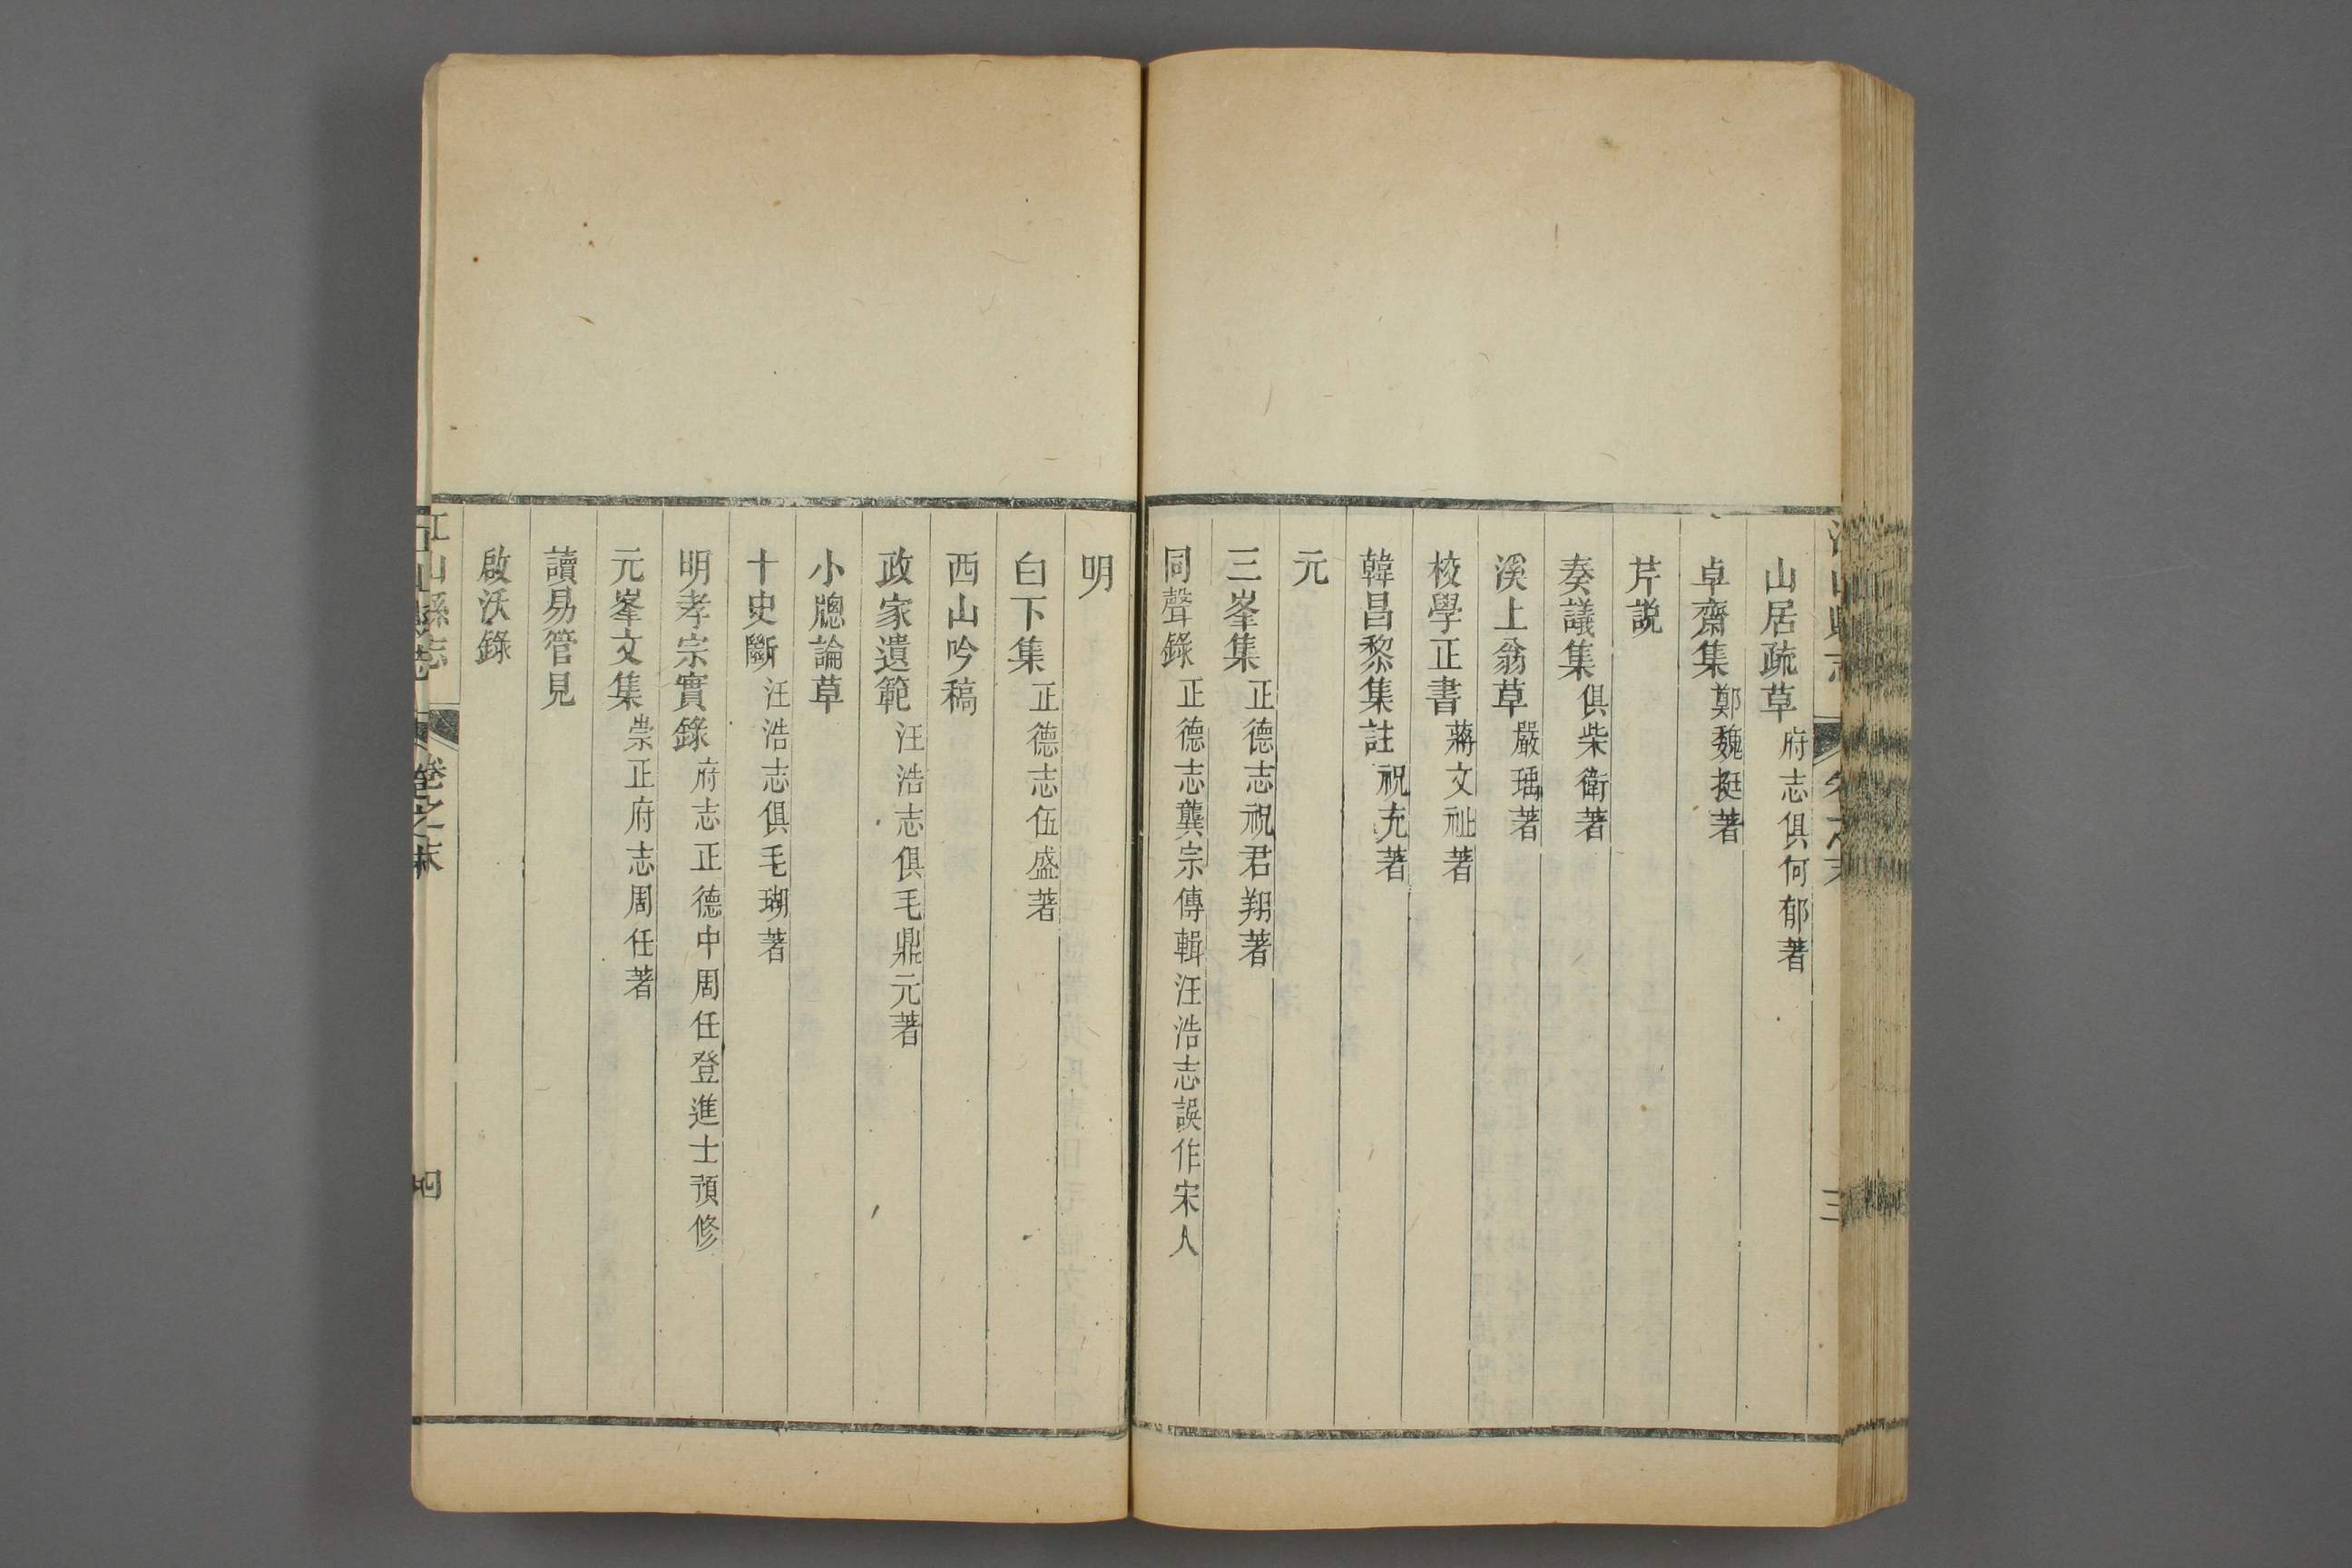 山居疏草府志俱何郁著
卓齋集鄭魏挺著
芹説
奏議集俱柴衛著
溪上翁草嚴瑀著
校學正書蔣文祉著
韓昌黎集註祝充著
元
三峯集正德志祝君翔著
同聲錄正德志龔宗傳輯汪浩志誤作宋人
明
白下集正德志伍盛著
西山吟稿
政家遺範汪浩志俱毛鼎元著
小牕論草
十史斷汪浩志俱毛瑚著
明孝宗實錄府志正德中周任登進士預修
元峯文集崇正府志周任著
讀易管見
啟沃錄
江山縣志 卷之末 四